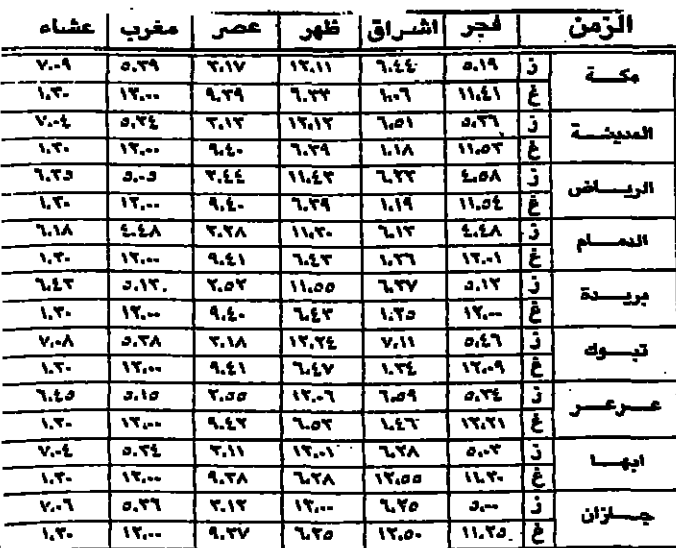 الزمن فجر اشراق ظهر عصر مغرب عشاء
مكة ز ٥،١٩ ٦،٤٤ ١٢،١١ ٣،١٧ ٥،٣٩ ٧،٠٩
غ ١١،٤١ ١،٠٦ ٦،٣٣ ٩،٣٩ ١٢،٠٠ ١،٣٠
المدينة ز ٥،٢٦ ٦،٥١ ١٢،١٢ ٣،١٣ ٥،٣٤ ٧،٠٤
غ ١١،٥٣ ١،١٨ ٦،٣٩ ٩،٤٠ ١٢،٠٠ ١،٣٠
الرياض ز ٤،٥٨ ٦،٢٣ ١١،٤٣ ٢،٤٤ ٥،٠٥ ٦،٣٥
غ ١١،٥٤ ١،١٩ ٦،٣٩ ٩،٤٠ ١٢،٠٠ ١،٣٠
الدمام ز ٤،٤٨ ٦،١٣ ١١،٣٠ ٢،٢٨ ٤،٤٨ ٦،١٨
غ ١٢،٠١ ١،٢٦ ٦،٤٣ ٩،٤١ ١٢،٠٠ ١،٣٠
بريدة ز ٥،١٢ ٦،٣٧ ١١،٥٥ ٢،٥٢ ٥،١٢ ٦،٤٢
غ ١٢،٠٠ ١،٢٥ ٦،٤٣ ٩،٤٠ ١٢،٠٠ ١،٣٠
تبوك ز ٥،٤٦ ٧،١١ ١٢،٢٤ ٣،١٨ ٥،٣٨ ٧،٠٨
غ ١٢،٠٩ ١،٣٤ ٦،٤٧ ٩،٤١ ١٢،٠٠ ١،٣٠
عرعر ز ٥،٣٤ ٦،٥٩ ١٢،٠٦ ٢،٥٥ ٥،١٥ ٦،٤٥
غ ١٢،٢١ ١،٤٦ ٦،٥٣ ٩،٤٢ ١٢،٠٠ ١،٣٠
ابها ز ٥،٠٣ ٦،٢٨ ١٢،٠١ ٣،١١ ٥،٣٤ ٧،٠٤
غ ١١،٣٠ ١٢،٥٥ ٦،٢٨ ٩،٣٨ ١٢،٠٠ ١،٣٠
جازان ز ٥،٠٠ ٦،٢٥ ١٢،٠٠ ٣،١٣ ٥،٣٦ ٧،٠٦
غ ١١،٢٥ ١٢،٥٠ ٦،٢٥ ٩،٣٧ ١٢،٠٠ ١،٣٠